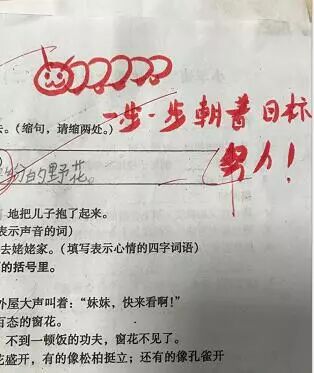 一步一步朝着目标
努力！
去。（缩句，请缩两处。）
的野花。
地把儿子抱了起来。
表示声音的词）
去姥姥家。（填写表示心情的四字词语）
的括号里。
外屋大声叫着：“妹妹，快来看啊！”
百态的窗花。
，不到一顿饭的功夫，窗花不见了。
花盛开，有的像松柏挺立；还有的像孔雀开